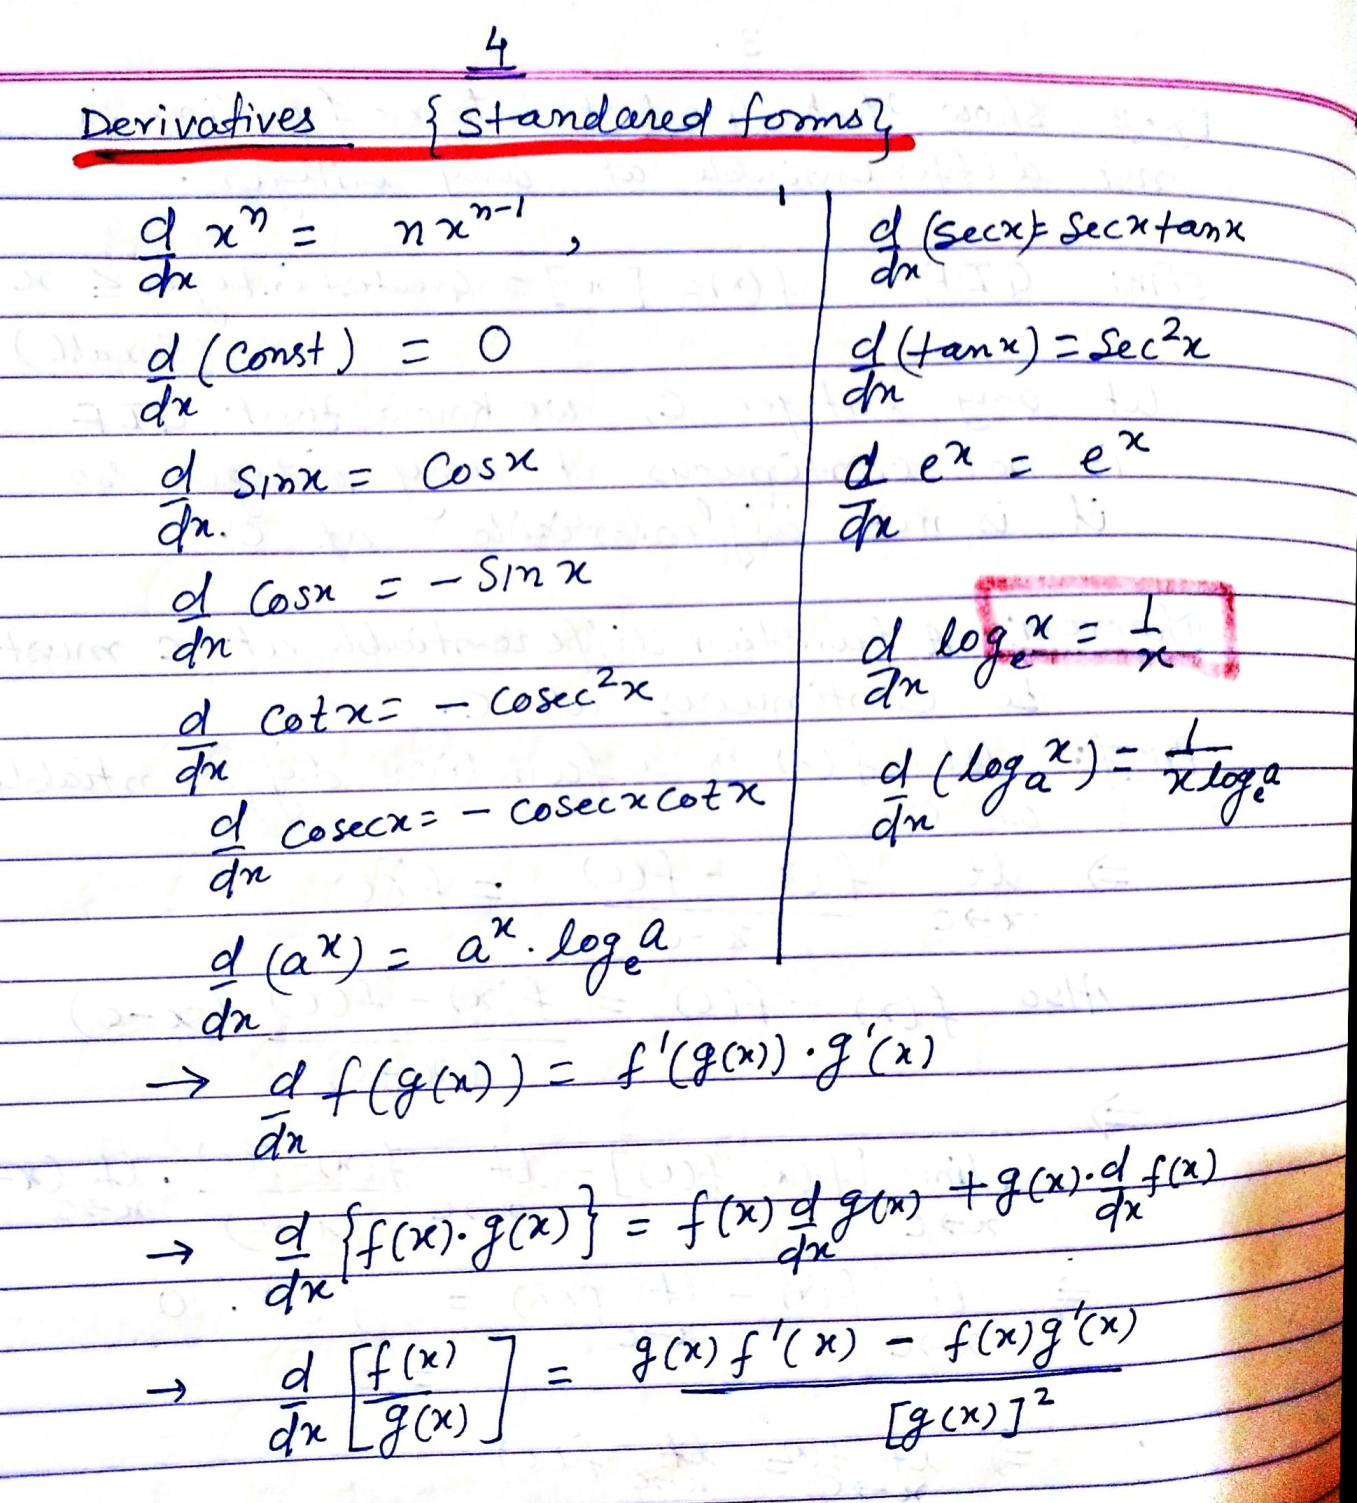 4
Derivatives {standared forms}
d/dx xⁿ = nxⁿ⁻¹ ,
d/dx (const) = 0
d/dx sinx = cosx
d/dx cosx = - sinx
d/dx cotx = - cosec²x
d/dx cosecx = - cosecx cotx
d/dx (aˣ) = aˣ . logₑa
d/dx (secx) = secx tanx
d/dx (tanx) = sec²x
d/dx eˣ = eˣ
d/dx logₑx = 1/x
d/dx (logₐx) = 1/(x logₑa)
→ d/dx f(g(x)) = f'(g(x)) · g'(x)
→ d/dx {f(x)·g(x)} = f(x) d/dx g(x) + g(x)·d/dx f(x)
→ d/dx [f(x)/g(x)] = (g(x) f'(x) - f(x) g'(x))/[g(x)]²